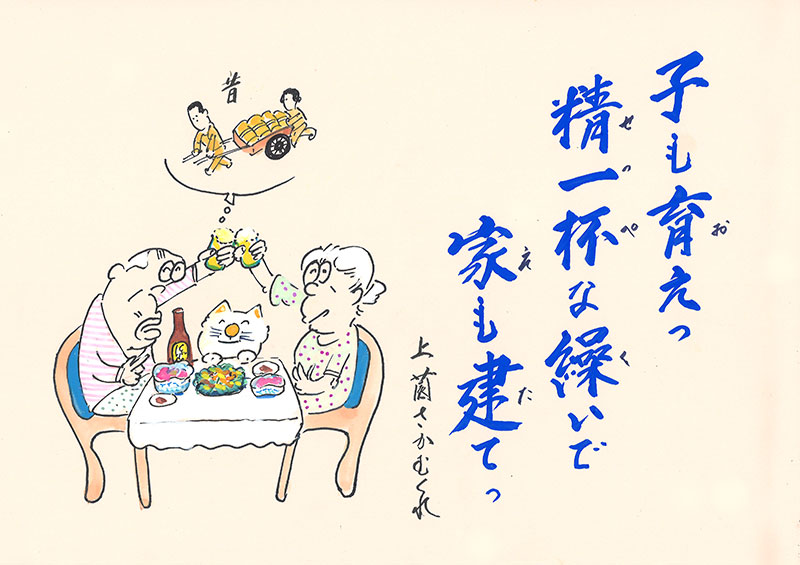 子も育えっ
お
精一杯な繰いで
せっぺ
く
家も建てっ
え
た
上薗さかむくれ
昔